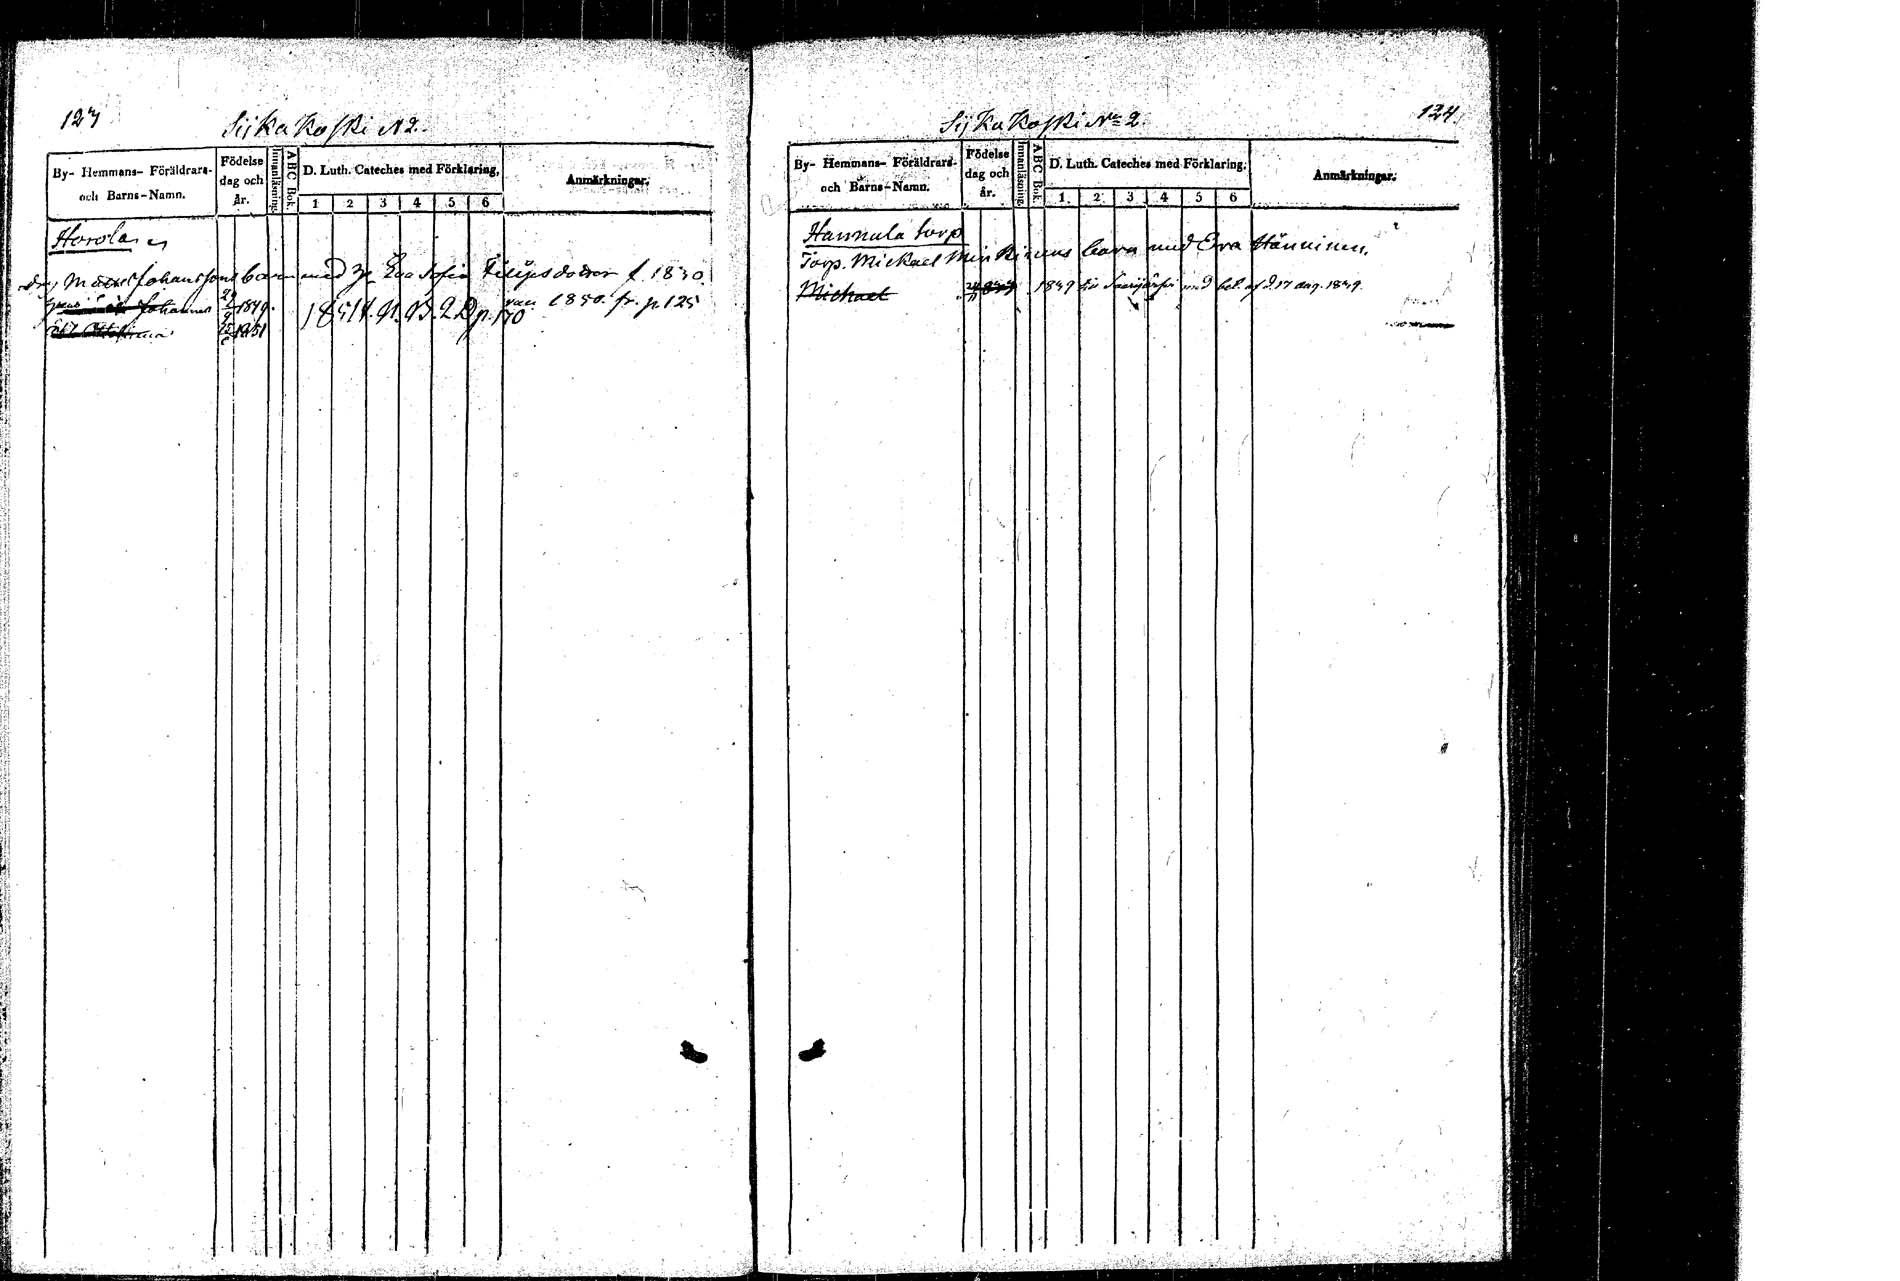 123
Sijkakoski N 2.
By- Hemmans- Föräldrars- och Barns-Namn.
Födelse dag och år.
Innanläsning.
ABC Bok.
D. Luth. Cateches med Förklaring.
1 2 3 4 5 6
Anmärkningar.
Horola
Johanssons barn med h. Eva Sofia Filipsdotter f. 1830.
Johannes 1849. van 1850. fr. p. 125
1851 1851 t. N. B. 2. D p. 170
Sijkakoski No 2.
124.
By- Hemmans- Föräldrars- och Barns-Namn.
Födelse dag och år.
Innanläsning.
ABC Bok.
D. Luth. Cateches med Förklaring.
1 2 3 4 5 6
Anmärkningar.
Hannula torp
Torp. Mickael Minkinens barn med Eva Hänninen.
Michael 1849 till Saarijärfvi med bet. af d. 17 aug. 1849.